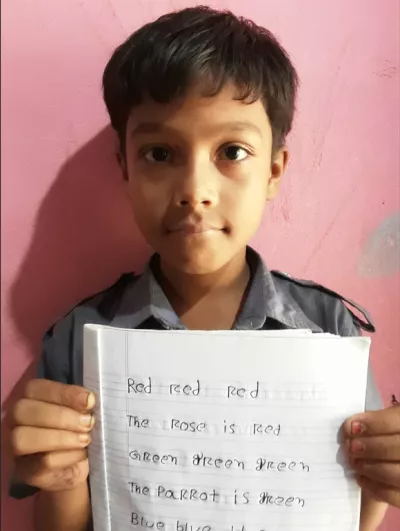 Red Red Red
The Rose is Red
Green green green
The PaRRot is green
Blue blue